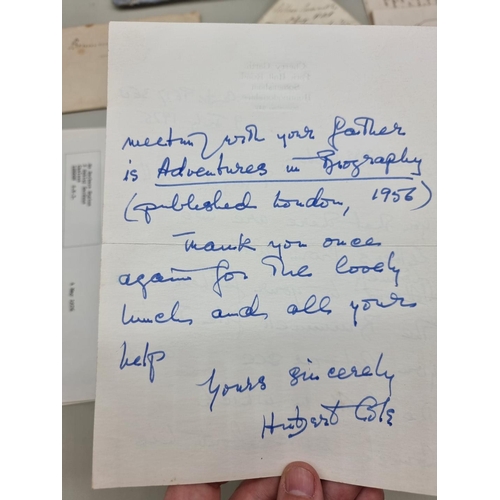 meeting with your father
is Adventures in Biography
(published London, 1956)
Thank you once
again for the lovely
lunch and all your
help
Yours sincerely
Hubert Cole